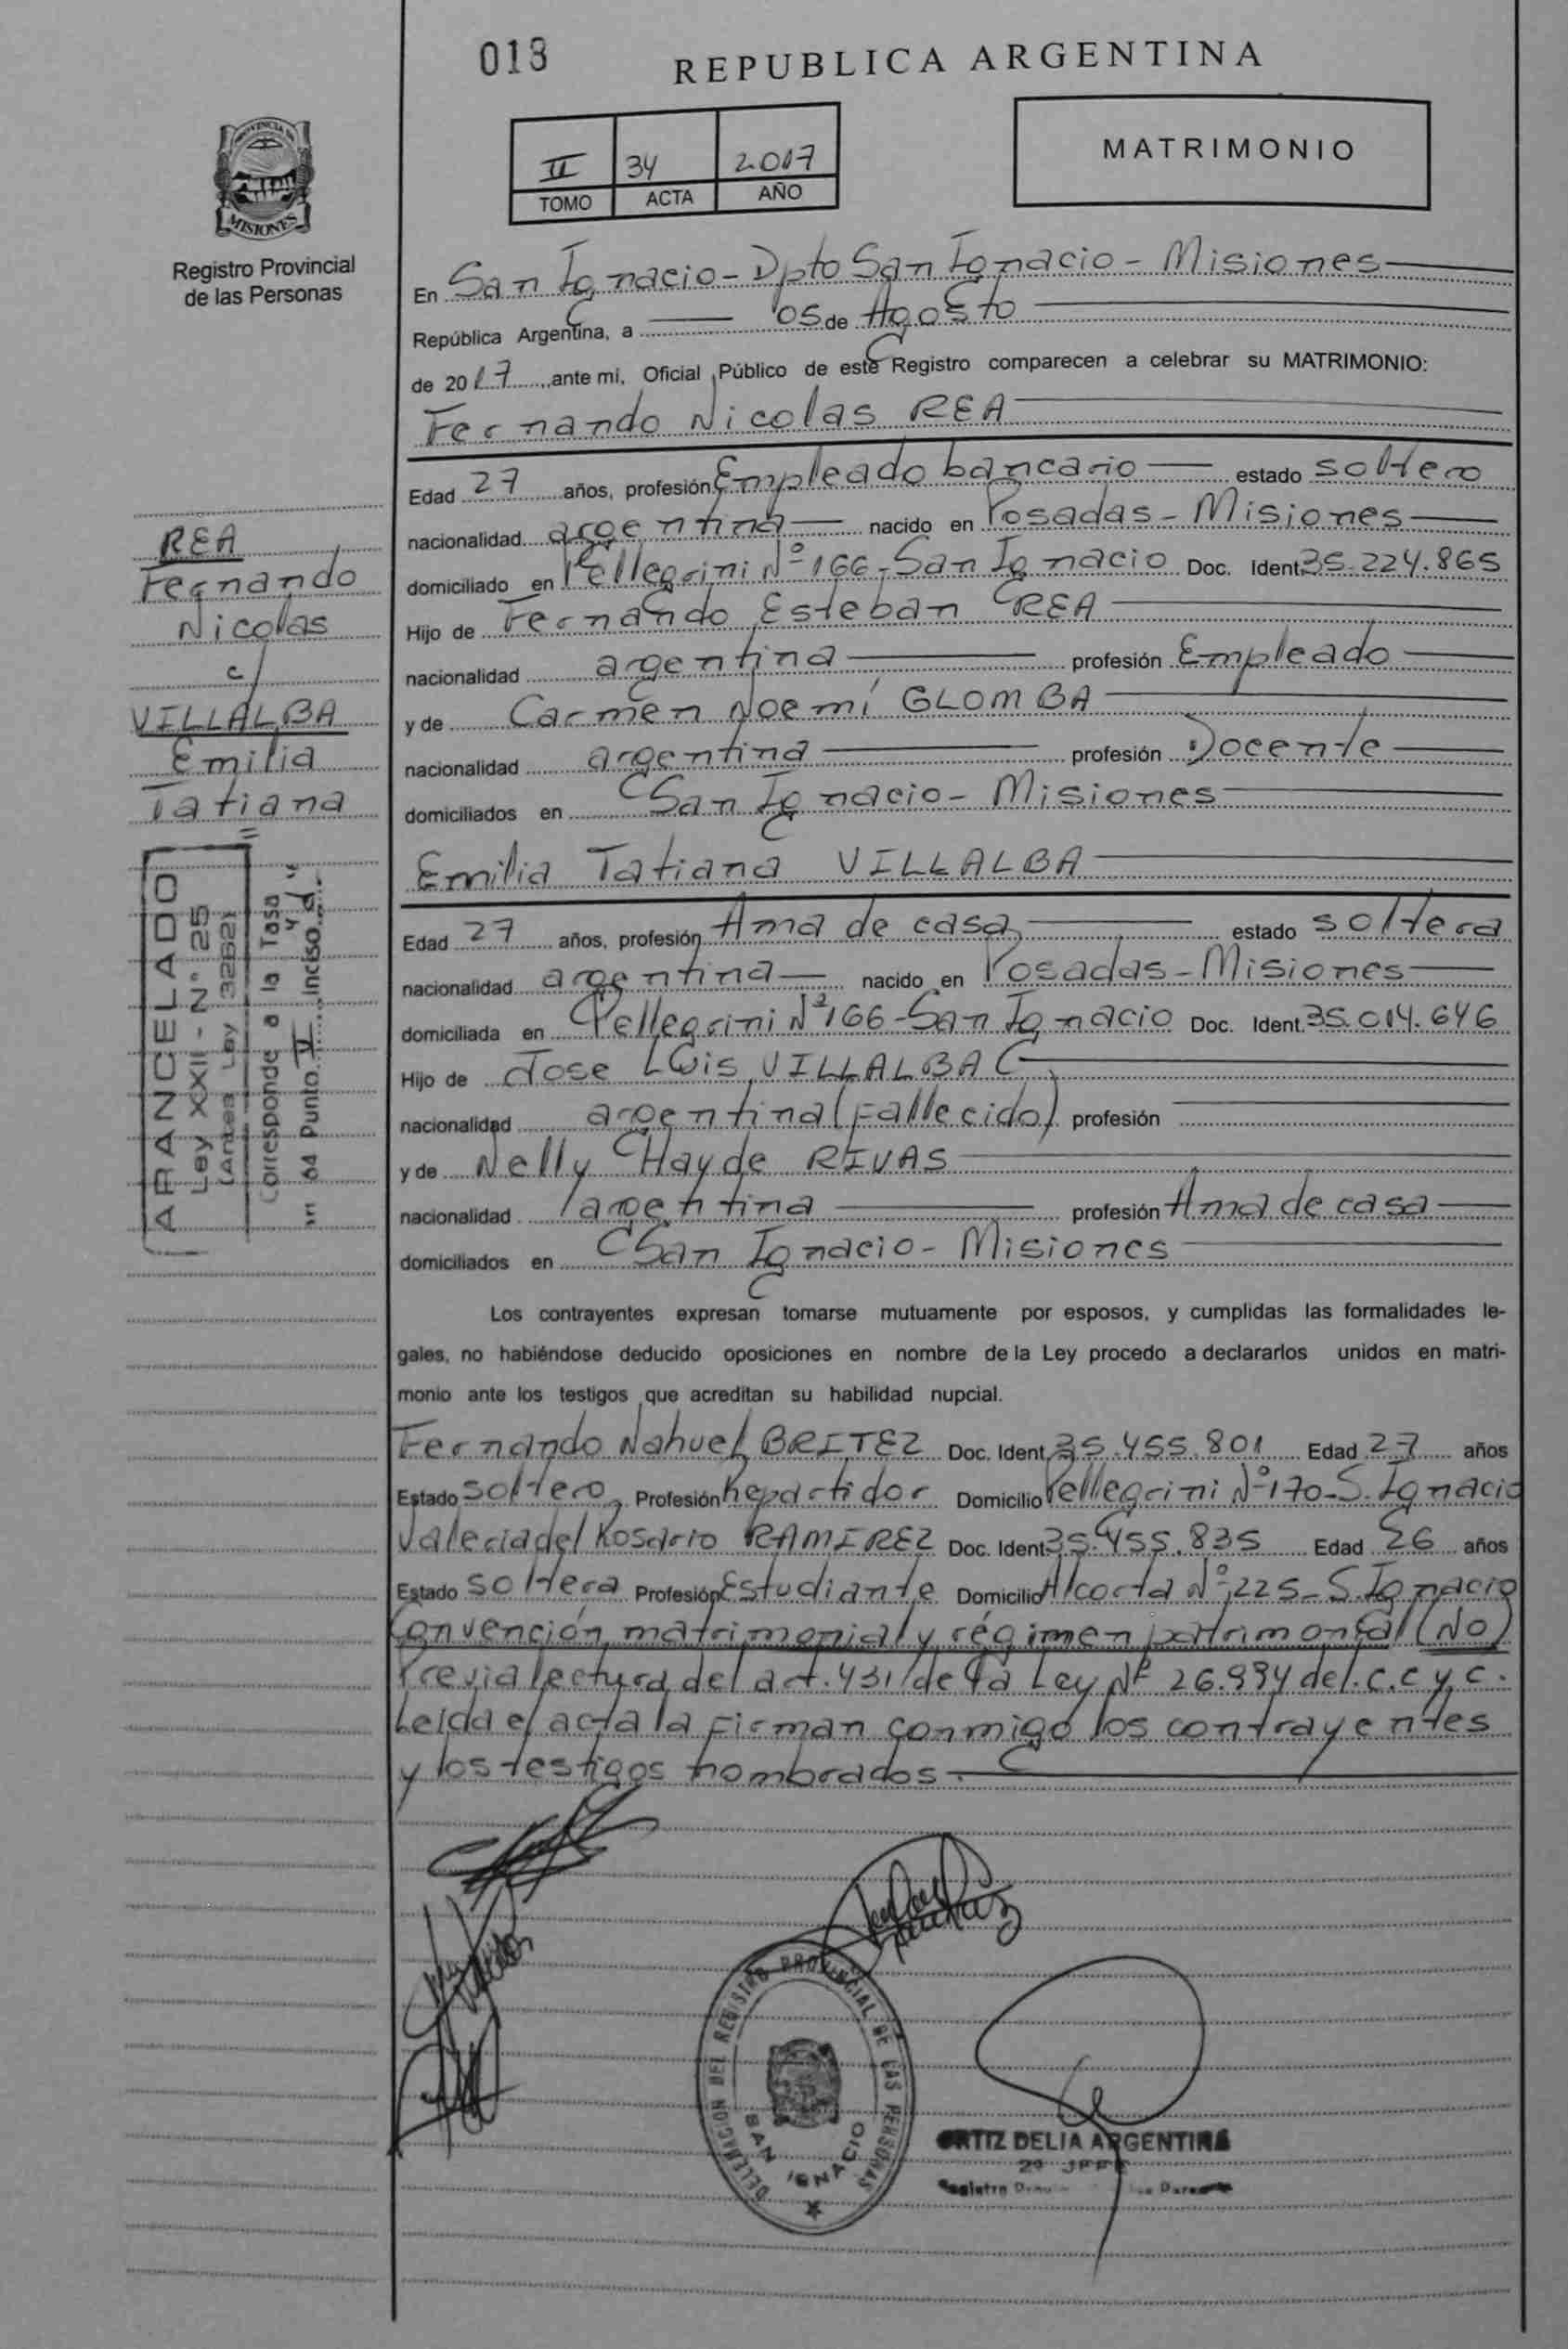 013
REPUBLICA ARGENTINA
MATRIMONIO
II 34 2017
TOMO ACTA AÑO
PROVINCIA DE
MISIONES
Registro Provincial
de las Personas
En San Ignacio - Dpto San Ignacio - Misiones
República Argentina, a 05 de Agosto
de 2017 ante mi, Oficial Público de este Registro comparecen a celebrar su MATRIMONIO:
Fernando Nicolas REA
Edad 27 años, profesión Empleado bancario estado soltero
nacionalidad argentina nacido en Posadas - Misiones
domiciliado en Pellegrini Nº 166 - San Ignacio Doc. Ident. 35.224.865
Hijo de Fernando Esteban REA
nacionalidad argentina profesión Empleado
y de Carmen Noemí GLOMBA
nacionalidad argentina profesión Docente
domiciliados en San Ignacio - Misiones
Emilia Tatiana VILLALBA
Edad 27 años, profesión Ama de casa estado soltera
nacionalidad argentina nacido en Posadas - Misiones
domiciliada en Pellegrini Nº 166 - San Ignacio Doc. Ident. 35.014.646
Hijo de Jose Luis VILLALBA
nacionalidad argentina (Fallecido) profesión
y de Nelly Hayde RIVAS
nacionalidad argentina profesión Ama de casa
domiciliados en San Ignacio - Misiones
Los contrayentes expresan tomarse mutuamente por esposos, y cumplidas las formalidades le-
gales, no habiéndose deducido oposiciones en nombre de la Ley procedo a declararlos unidos en matri-
monio ante los testigos que acreditan su habilidad nupcial.
Fernando Nahuel BRITEZ Doc. Ident. 35.455.801 Edad 27 años
Estado soltero Profesión Repartidor Domicilio Pellegrini Nº 170 - S. Ignacio
Valeria del Rosario RAMIREZ Doc. Ident. 35.455.835 Edad 26 años
Estado soltera Profesión Estudiante Domicilio Alcorta Nº 225 - S. Ignacio
Convención matrimonial y régimen patrimonial (NO)
Previa lectura del art. 431 de la Ley Nº 26.994 del C.C y C.
Leida el acta la Firman conmigo los contrayentes
y los testigos nombrados.
REA
Fernando
Nicolas
c/
VILLALBA
Emilia
Tatiana
ARANCELADO
Ley XXII - N° 25
(Antes Ley 3262)
Corresponde a la Tasa
64 Punto V inciso
DELEGACION DEL REGISTRO PROVINCIAL DE LAS PERSONAS
SAN IGNACIO
ORTIZ DELIA ARGENTINA
2º JEFE